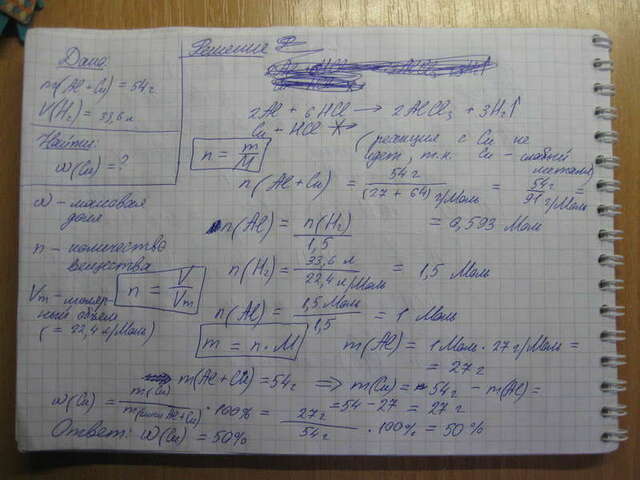 Дано:
m(Al + Cu) = 54 г
V(H₂) = 33,6 л
Найти:
ω(Cu) = ?
ω – массовая
доля
n – количество
вещества
Vm – моляр-
ный объём
(= 22,4 л/моль)
Решение
2Al + 6HCl → 2AlCl₃ + 3H₂↑
Cu + HCl ↛
(реакция с Cu не
идёт, т.к. Cu – слабый
металл)
n = m/M
n(Al + Cu) = 54 г / (27 + 64) г/моль = 54 г / 91 г/моль =
= 0,593 моль
n(Al) = n(H₂) / 1,5
n(H₂) = 33,6 л / 22,4 л/моль = 1,5 моль
n = V/Vm
n(Al) = 1,5 моль / 1,5 = 1 моль
m = n · M
m(Al) = 1 моль · 27 г/моль =
= 27 г
m(Al + Cu) = 54 г ⇒ m(Cu) = 54 г – m(Al) =
= 54 – 27 = 27 г
ω(Cu) = m(Cu) / m(Al + Cu) · 100% = 27 г / 54 г · 100% = 50%
Ответ: ω(Cu) = 50%